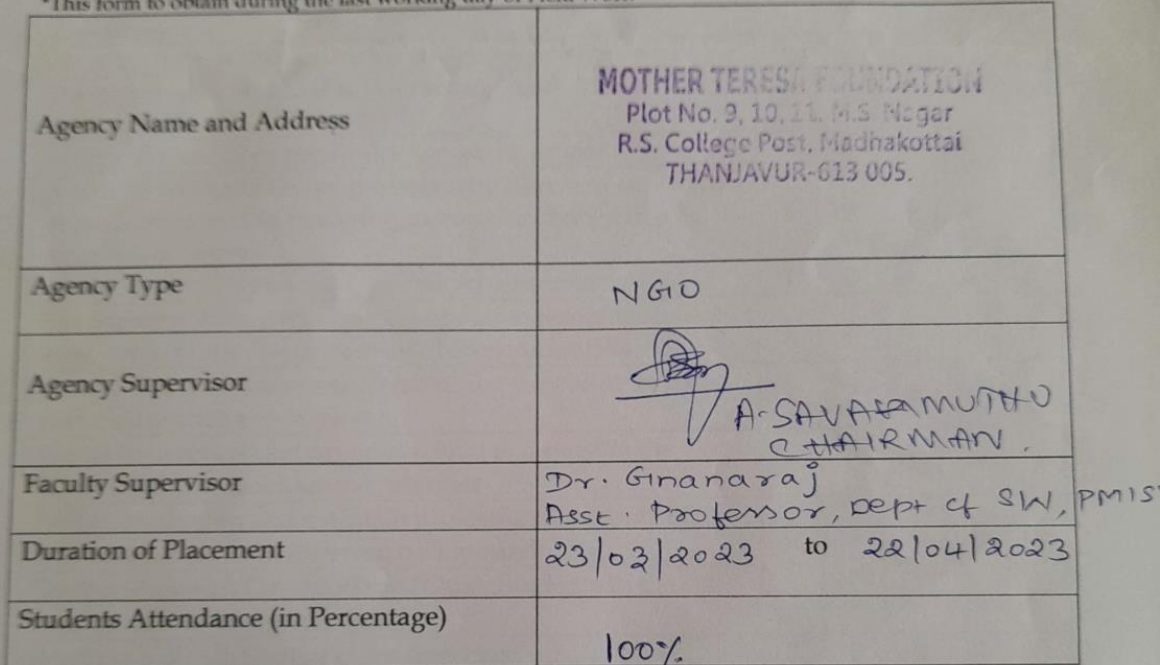 *This form to obtain during the last working day of Field Work
Agency Name and Address
MOTHER TERESA FOUNDATION
Plot No. 9, 10, 11. M.S. Nagar
R.S. College Post, Madhakottai
THANJAVUR-613 005.
Agency Type
NGO
Agency Supervisor
A. SAVARAMUTHU
CHAIRMAN.
Faculty Supervisor
Dr. Gnanaraj
Asst. Professor, Dept of SW, PMIS
Duration of Placement
23/03/2023 to 22/04/2023
Students Attendance (in Percentage)
100%